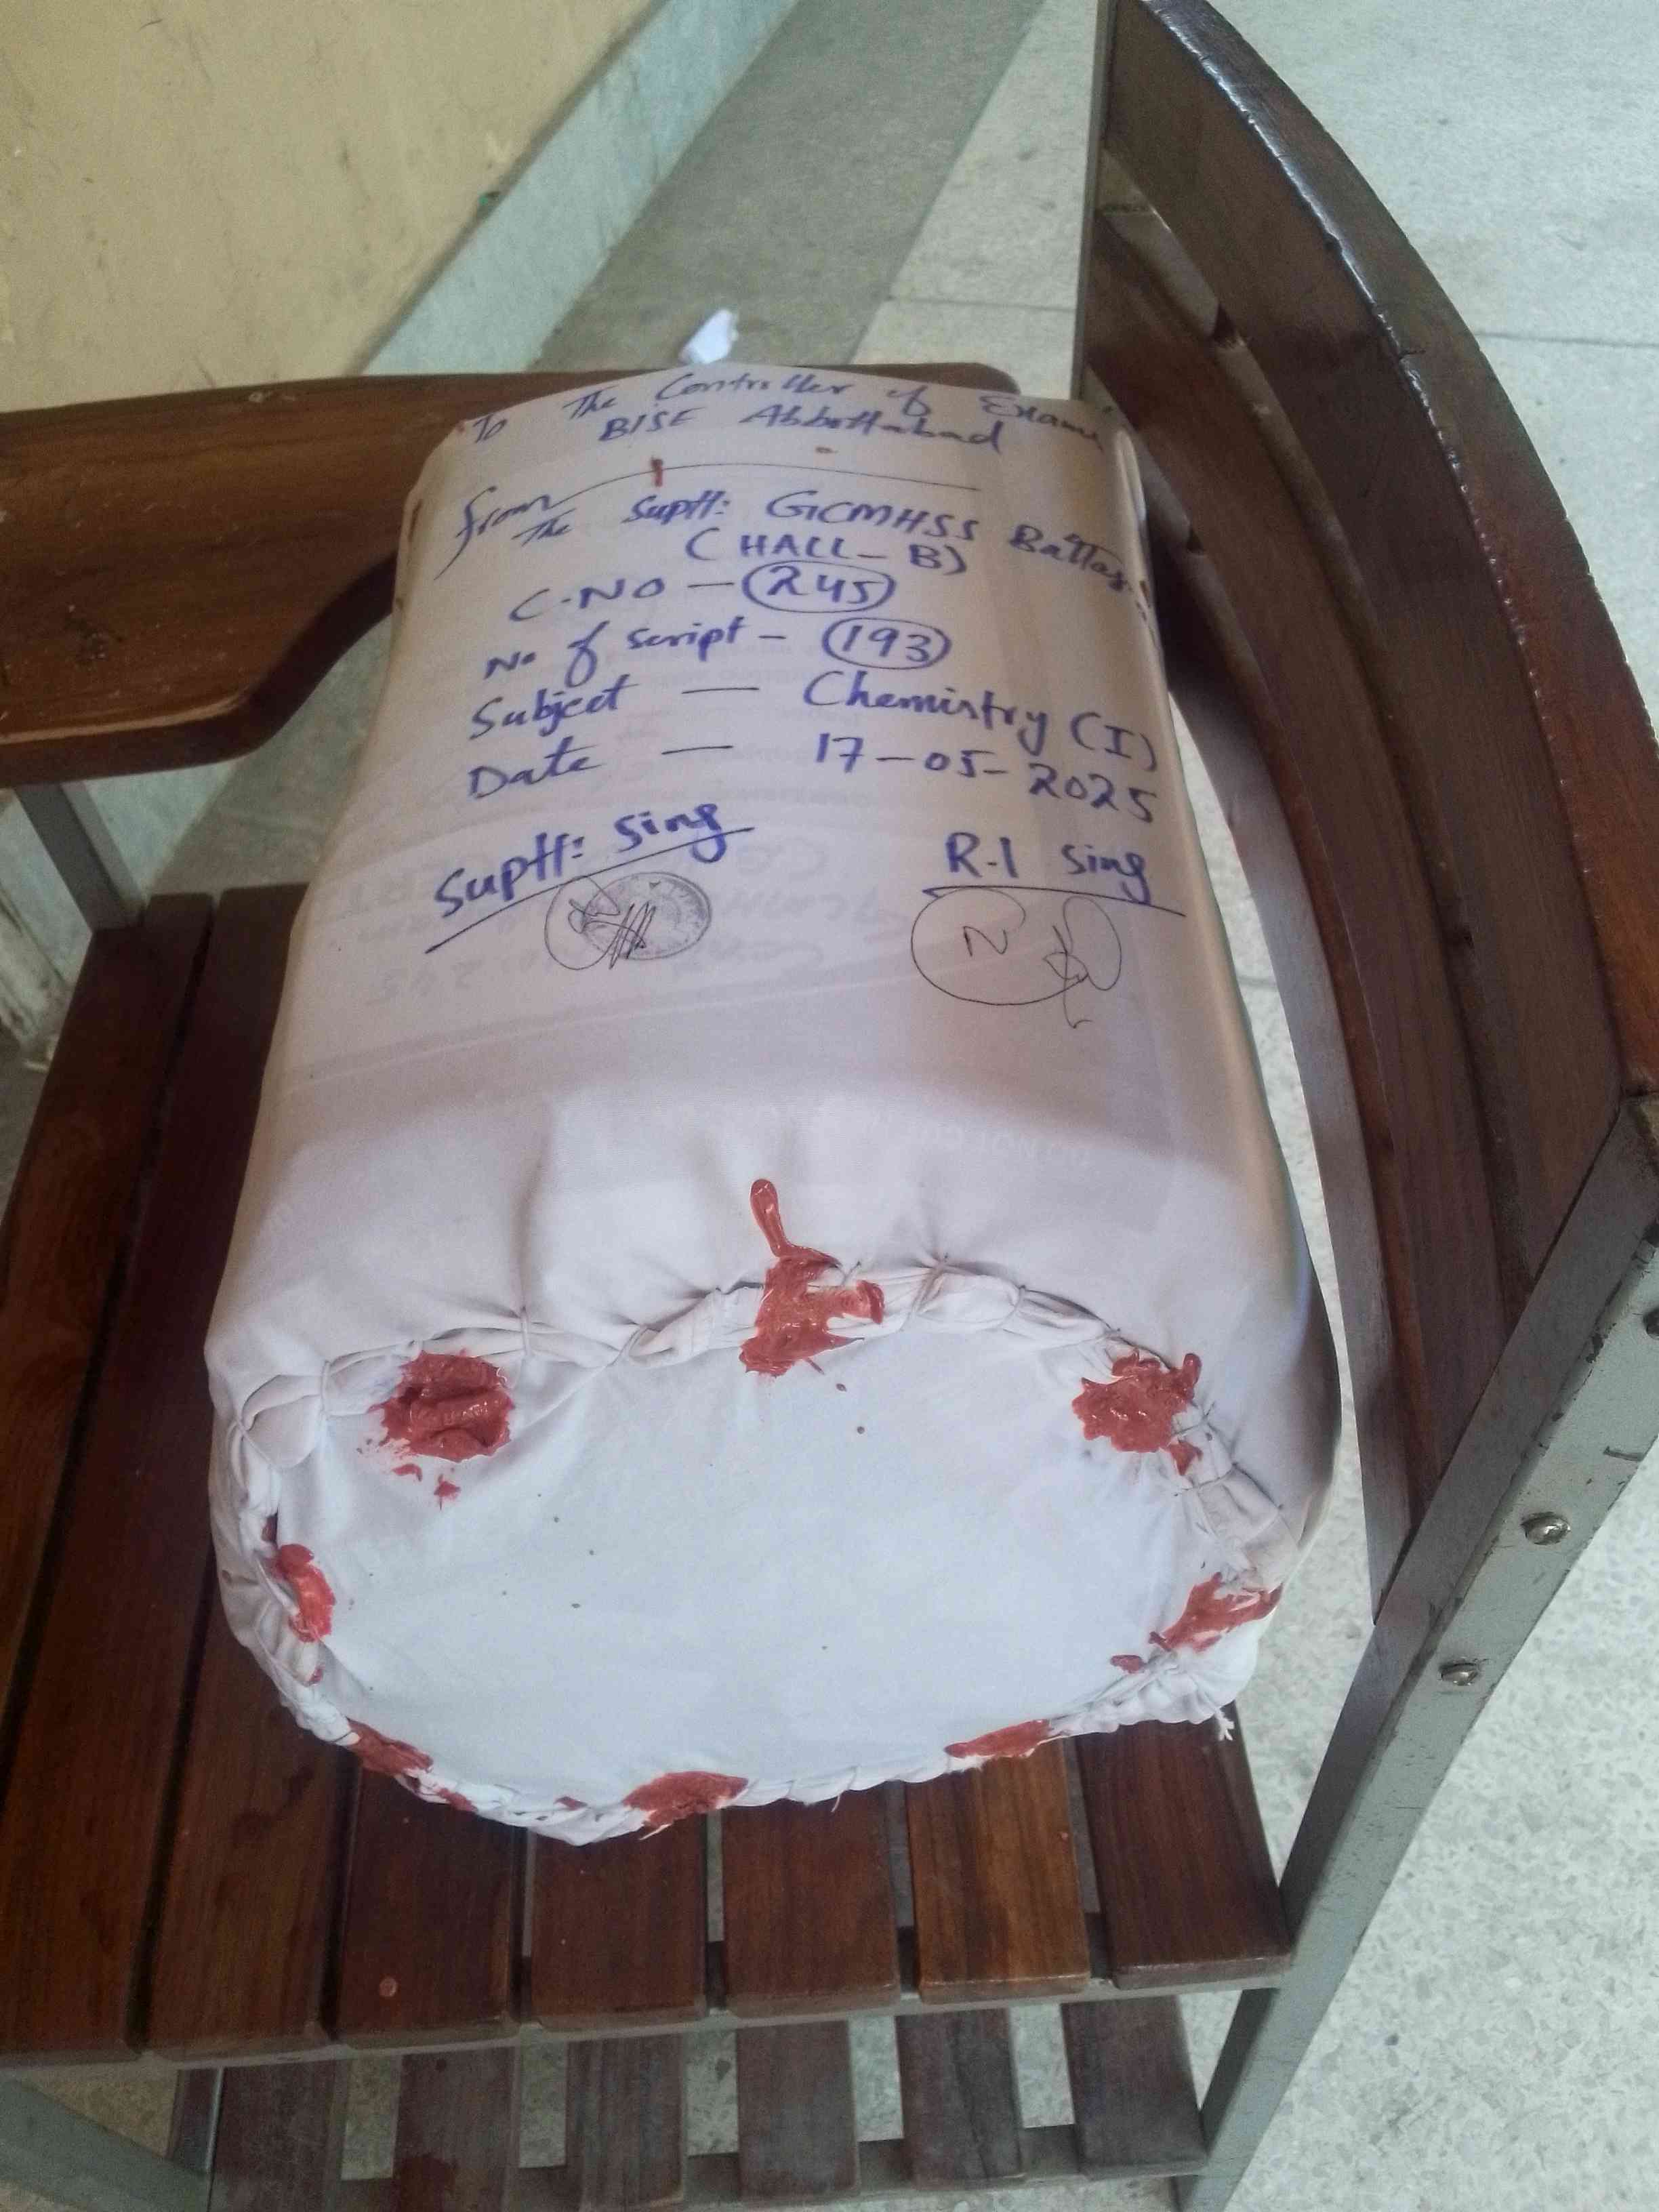 To The Controller of Exams
BISE Abbottabad
from
The Suptt: GCMHSS Battag
(HALL-B)
C.NO — 245
No of script - 193
Subject — Chemistry (I)
Date — 17-05-2025
Suptt: Sing
R.I Sing